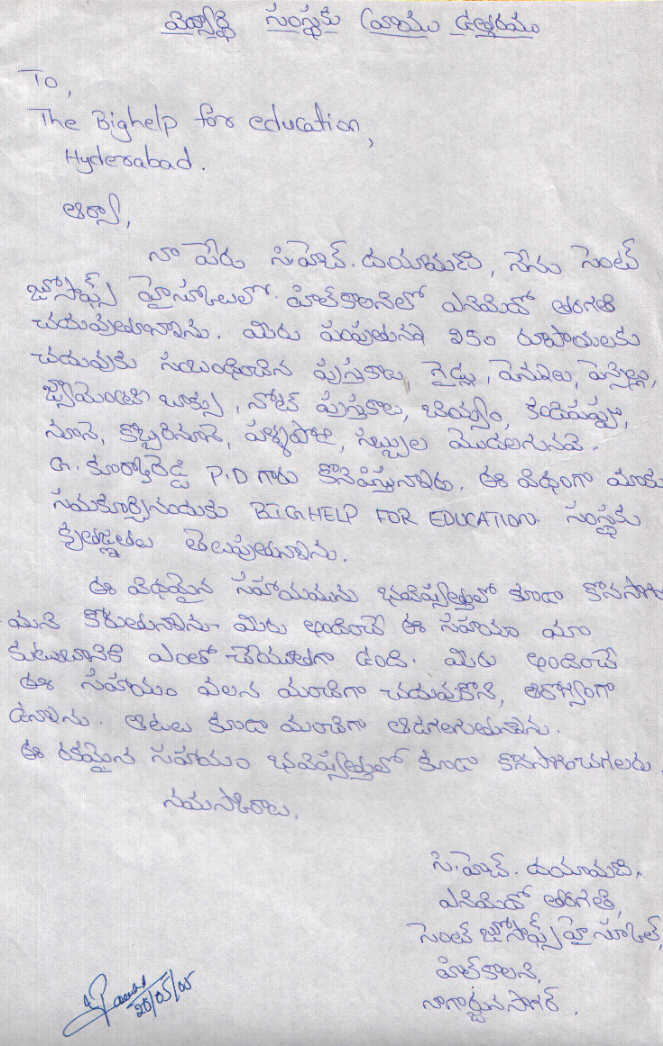 సంస్థకు వ్రాయు ఉత్తరము
To,
The Bighelp for education,
Hyderabad.
ఆర్యా,
నా పేరు సి.హెచ్. దయామణి, నేను సెంట్
జోసఫ్స్ హైస్కూలులో హిల్ కాలనిలో ఎనిమిదో తరగతి
చదువుతున్నాను. మీరు పంపుతున్న 250 రూపాయలకు
చదువుకు సంబంధించిన పుస్తకాలు గైడ్లు, పెనులు, పెన్సిల్లు,
జామెంటరి బాక్సు, నోట్ పుస్తకాలు, బియ్యం, కందిపప్పు,
నూనె, కొబ్బరినూనె, పళ్ళపొడి, సబ్బులు మొదలగునవి.
P.D గారు కొనిపిస్తున్నారు. ఈ విధంగా మాకు
సమకూర్చినందుకు BIGHELP FOR EDUCATION సంస్థకు
కృతజ్ఞతలు తెలుపుతున్నాను.
ఈ విధమైన సహాయమును భవిష్యత్తులో కూడా కొనసాగ
మని కోరుతున్నాను. మీరు అందించే ఈ సహాయం మా
కుటుంబానికి ఎంతో చేయూతగా ఉంది. మీరు అందించే
ఈ సహాయం వలన మంచిగా చదువుకొని, ఆరోగ్యంగా
ఉన్నాను. ఆటలు కూడా మంచిగా ఆడగలుగుతున్నాను.
ఈ రకమైన సహాయం భవిష్యత్తులో కూడా కొనసాగించగలరు.
నమస్కారాలు.
సి.హెచ్. దయామణి,
ఎనిమిదో తరగతి,
సెంట్ జోసఫ్స్ హైస్కూల్,
హిల్ కాలని,
నాగార్జునసాగర్.
20/05/05